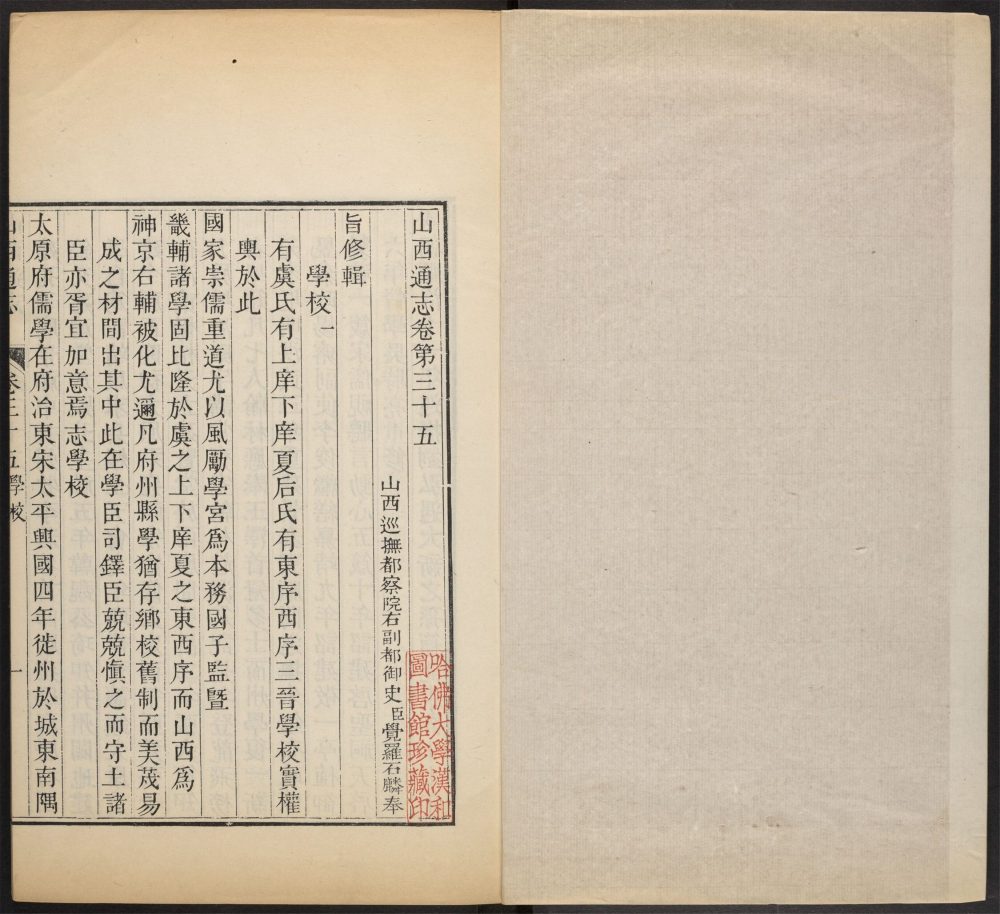 山西通志卷第三十五
山西巡撫都察院右副都御史臣覺羅石麟奉
旨修輯
學校一
有虞氏有上庠下庠夏后氏有東序西序三晉學校實權
輿於此
國家崇儒重道尤以風勵學宮爲本務國子監暨
畿輔諸學固比隆於虞之上下庠夏之東西序而山西爲
神京右輔被化尤邇凡府州縣學猶存鄉校舊制而美茂易
成之材間出其中此在學臣司鐸臣兢兢愼之而守土諸
臣亦胥宜加意焉志學校
太原府儒學在府治東宋太平興國四年徙州於城東南隅
山西通志
卷三十五學校
一
哈佛大學漢和
圖書館珍藏印